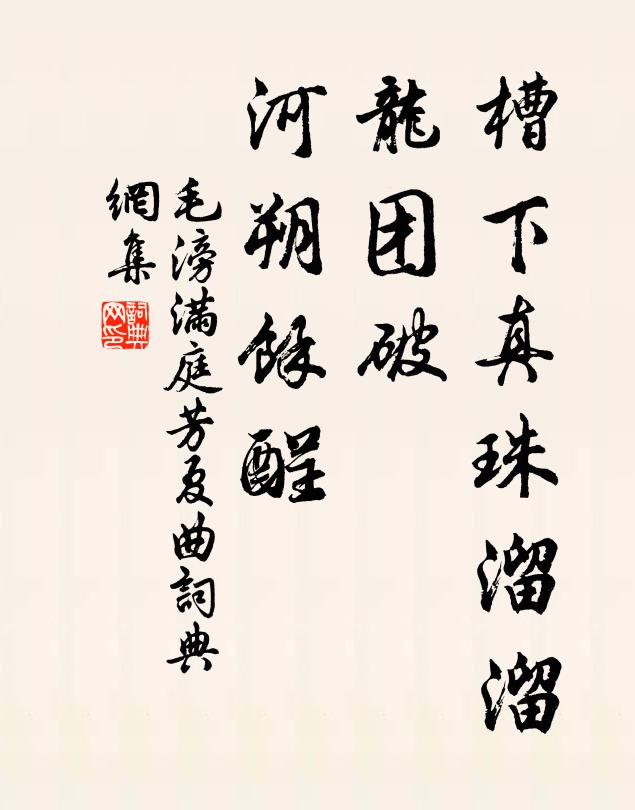 槽下真珠溜溜
龍团破
河朔餘酲
毛滂滿庭芳夏曲詞典
網集
詞典
网印